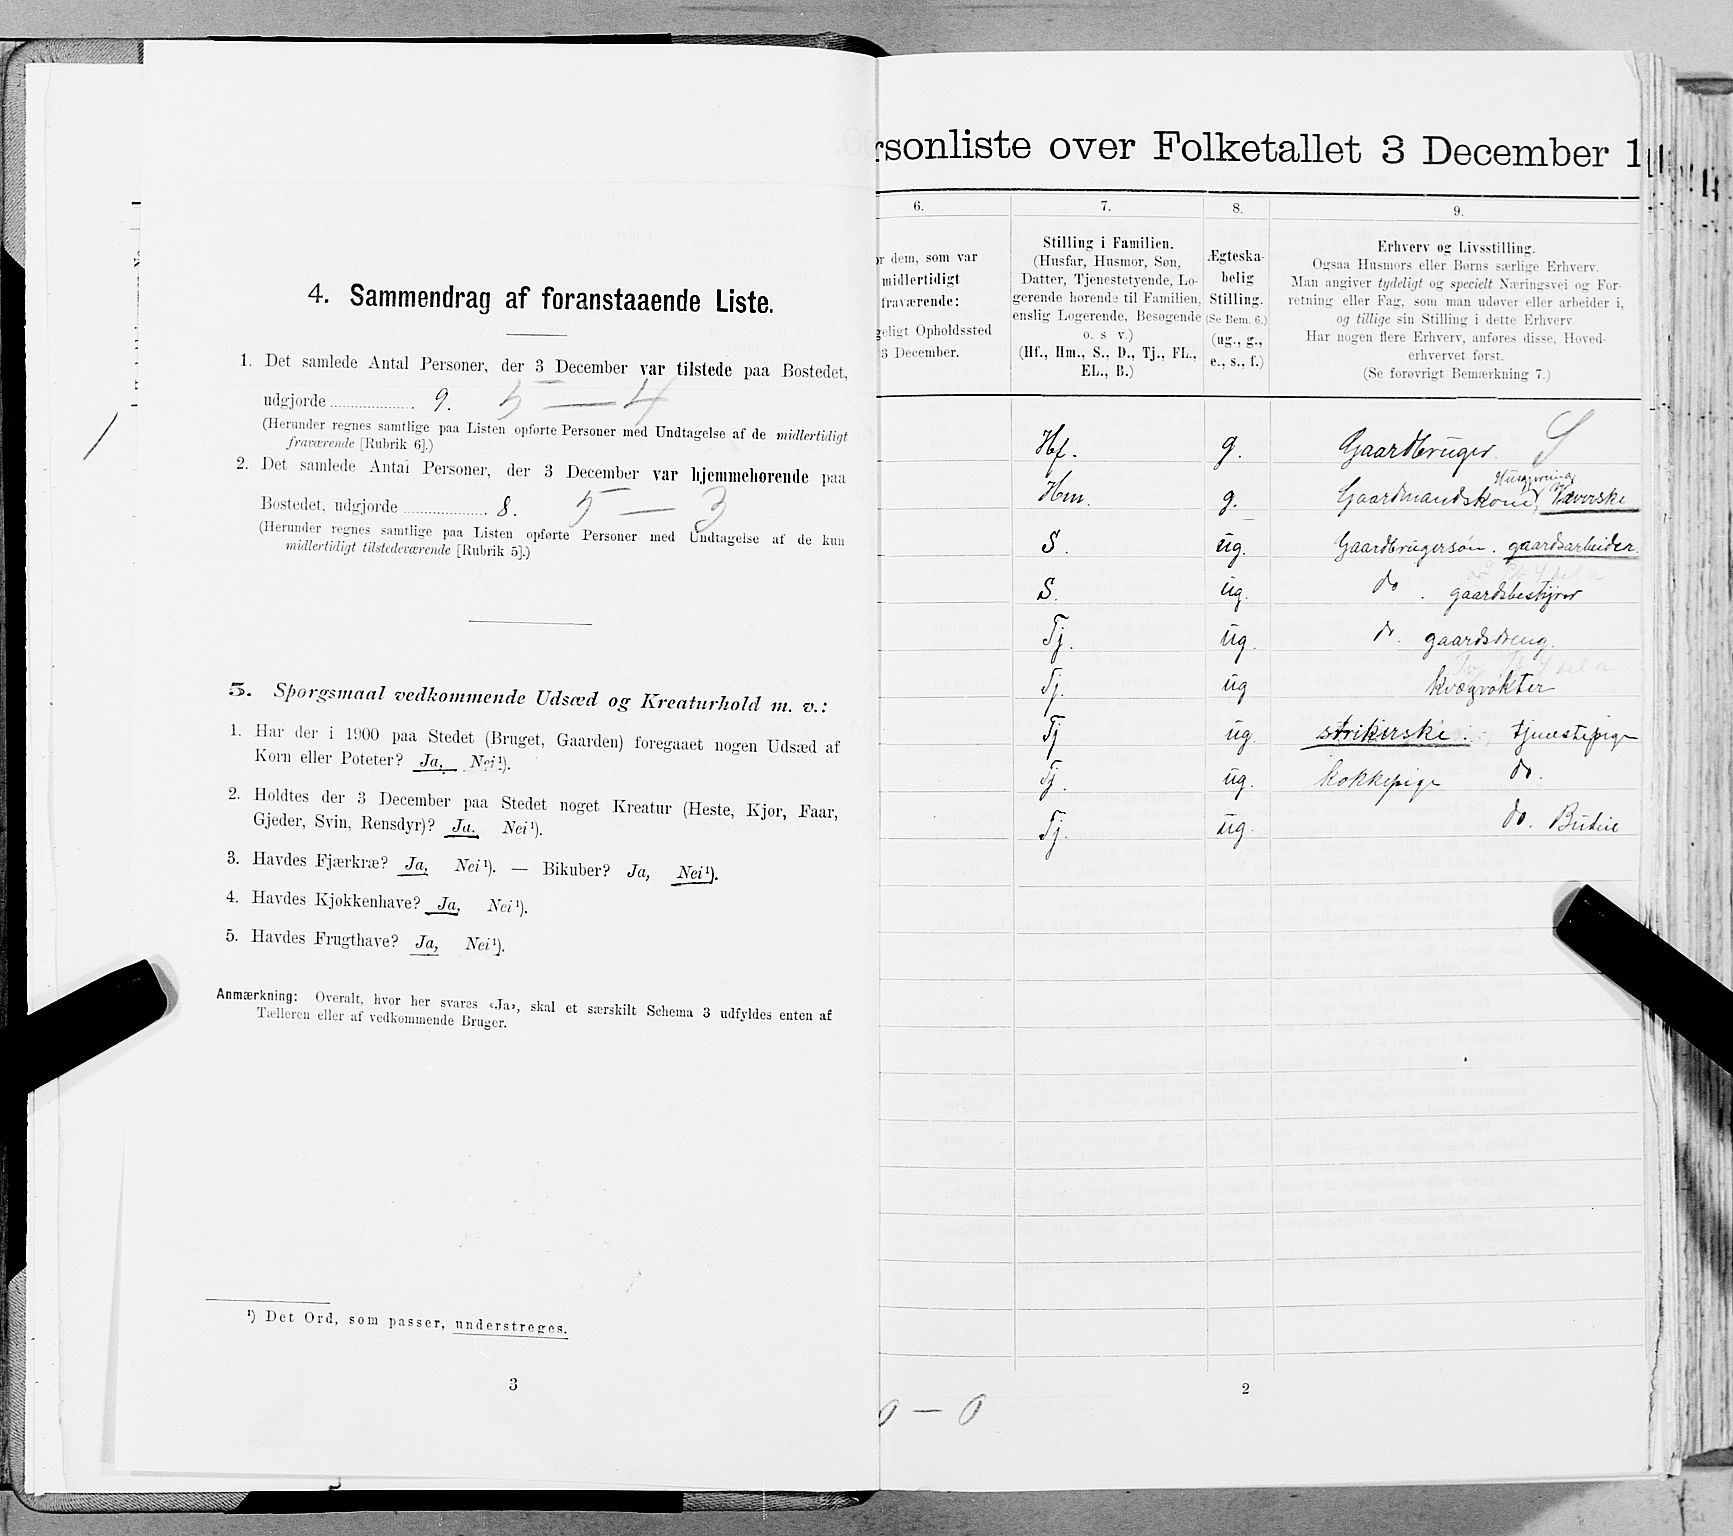 4. Sammendrag af foranstaaende Liste.
1. Det samlede Antal Personer, der 3 December var tilstede paa Bostedet,
udgjorde .................... 9. 5 — 4
(Herunder regnes samtlige paa Listen opførte Personer med Undtagelse af de midlertidigt
fraværende [Rubrik 6].)
2. Det samlede Antal Personer, der 3 December var hjemmehørende paa
Bostedet, udgjorde .................... 8. 5 — 3
(Herunder regnes samtlige paa Listen opførte Personer med Undtagelse af de kun
midlertidigt tilstedeværende [Rubrik 5].)
5. Spørgsmaal vedkommende Udsæd og Kreaturhold m. v.:
1. Har der i 1900 paa Stedet (Bruget, Gaarden) foregaaet nogen Udsæd af
Korn eller Poteter? Ja, Nei¹).
2. Holdtes der 3 December paa Stedet noget Kreatur (Heste, Kjør, Faar,
Gjeder, Svin, Rensdyr)? Ja. Nei¹).
3. Havdes Fjærkræ? Ja, Nei¹). — Bikuber? Ja, Nei¹).
4. Havdes Kjøkkenhave? Ja, Nei¹).
5. Havdes Frugthave? Ja, Nei¹).
Anmærkning: Overalt, hvor her svares «Ja», skal et særskilt Schema 3 udfyldes enten af
Tælleren eller af vedkommende Bruger.
¹) Det Ord, som passer, understreges.
3
rsonliste over Folketallet 3 December 1
6.
7.
8.
9.
r dem, som var
midlertidigt
fraværende:
geligt Opholdssted
3 December.
Stilling i Familien.
(Husfar, Husmor, Søn,
Datter, Tjenestetyende, Lo-
gerende hørende til Familien,
enslig Logerende, Besøgende
o. s v.)
(Hf., Hm., S., D., Tj., FL.,
EL., B.)
Ægteska-
belig
Stilling.
(Se Bem. 6.)
(ug., g.,
e., s., f.)
Erhverv og Livsstilling.
Ogsaa Husmors eller Børns særlige Erhverv.
Man angiver tydeligt og specielt Næringsvei og For-
retning eller Fag, som man udøver eller arbeider i,
og tillige sin Stilling i dette Erhverv
Har nogen flere Erhverv, anføres disse, Hoved-
erhvervet først.
(Se forøvrigt Bemærkning 7.)
Hf. g. Gaardbruger. S
Husgjerning
Hm. g. Gaardmandskone, Væverske
S. ug. Gaardbrugersøn. gaardsarbeider.
S. ug. do. gaardsbestyrer
Tj. ug. do. gaardsdreng.
Tj. ug kvægvokter
Tj ug. strikerske. tjenestepige
Tj. ug. kokkepige do.
Tj. ug. do. Budeie
2
0 — 0